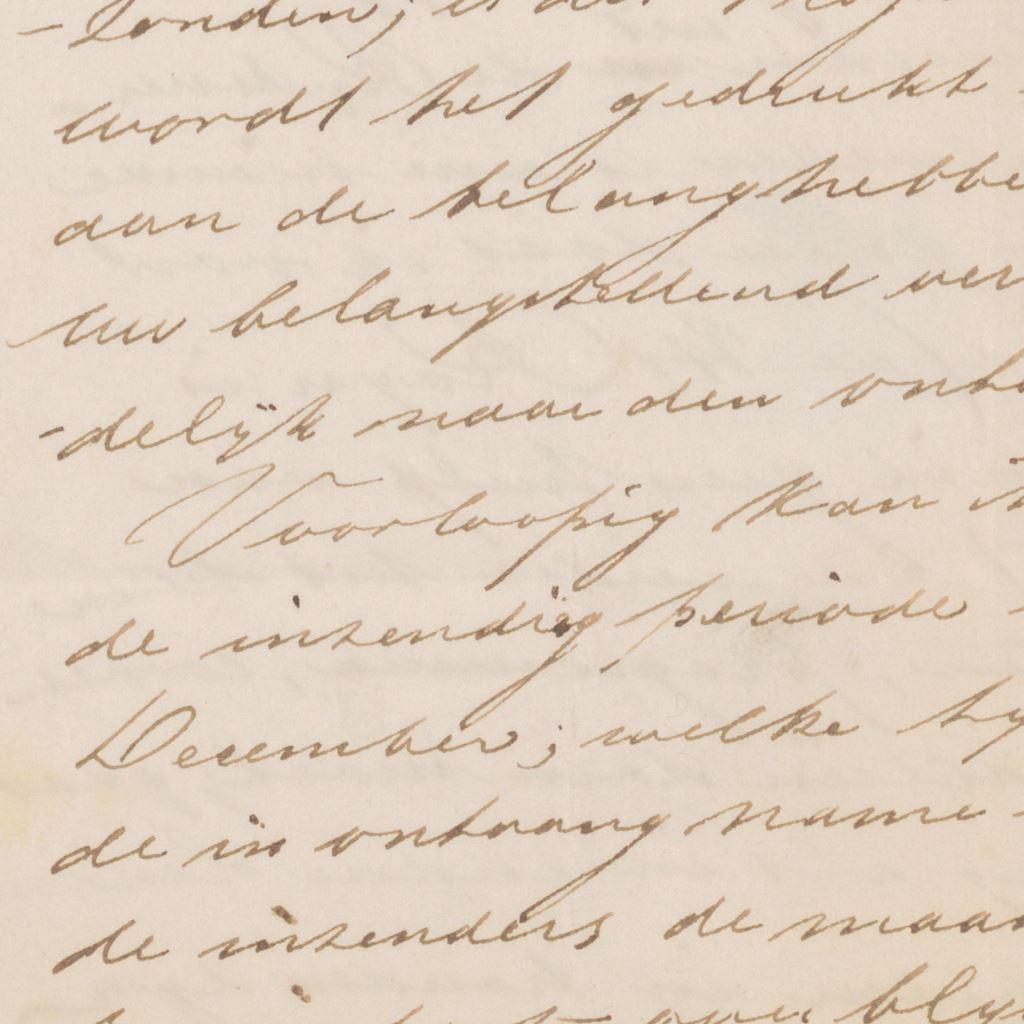 -zonden; is dit
wordt het gedrukt
aan de belanghebbe
Uw belangstellend ver
-delijk naar den ontv
Voorloopig kan i
de inzendig periode
December; welke ty
de in ontvang name
de inzenders de maan